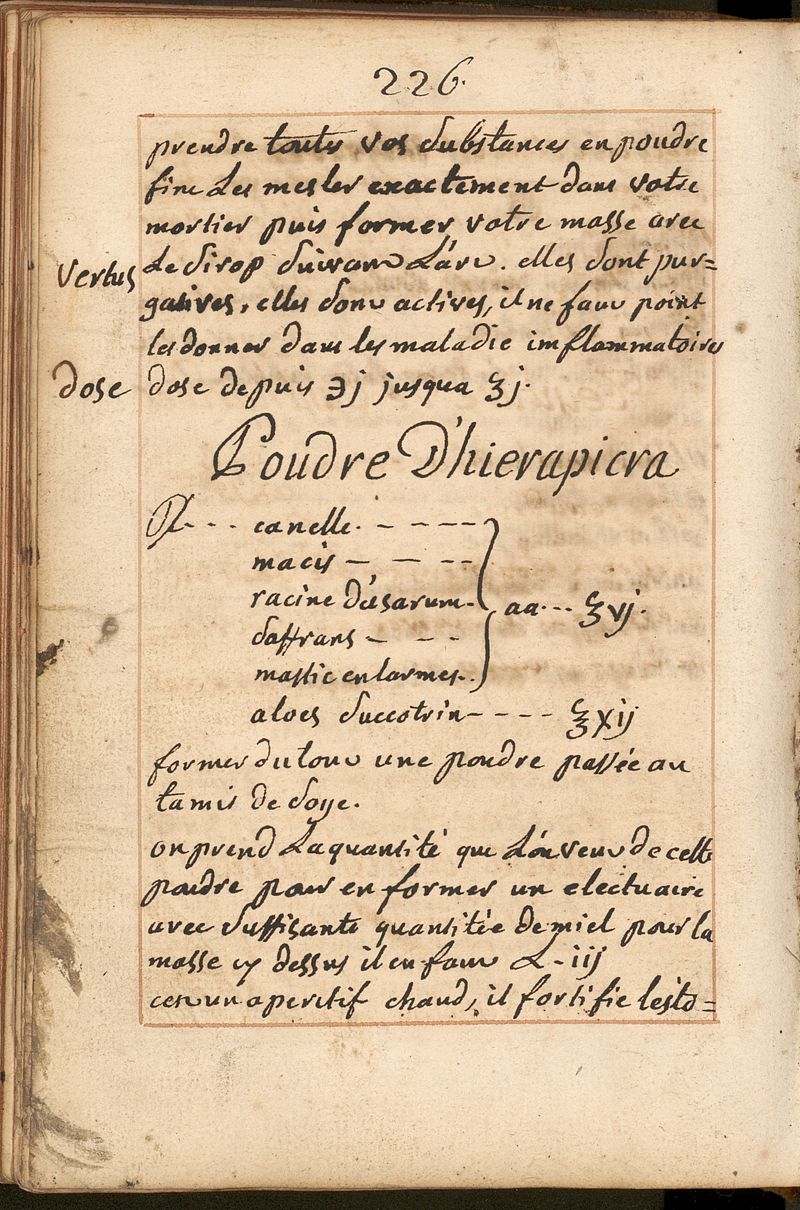 226.
prendre toutes vos Substances en poudre
fine Les mesler exactement dans votre
mortier puis former votre masse avec
Vertus Le Sirop Suivant L'art. elles Sont pur=
gatives, elles Sont actives, il ne faut point
les donner dans les maladie imflammatoires
dose dose depuis ℈j jusqua ʒj.
Poudre D'hierapicra
℞... canelle. - - - - -
macis - - - -
racine d'asarum. - aa... ʒvj.
Saffrans - - -
mastic en larmes. .
aloes Succotrin - - - - ʒxij
former du tout une poudre passée au
tamis de Soye.
on prend La quantité que L'on veut de cette
poudre pour en former un electuaire
avec Suffisante quantitée de miel pour la
masse cy dessus il en faut L - iij
cest un aperitif chaud, il fortifie lesto=